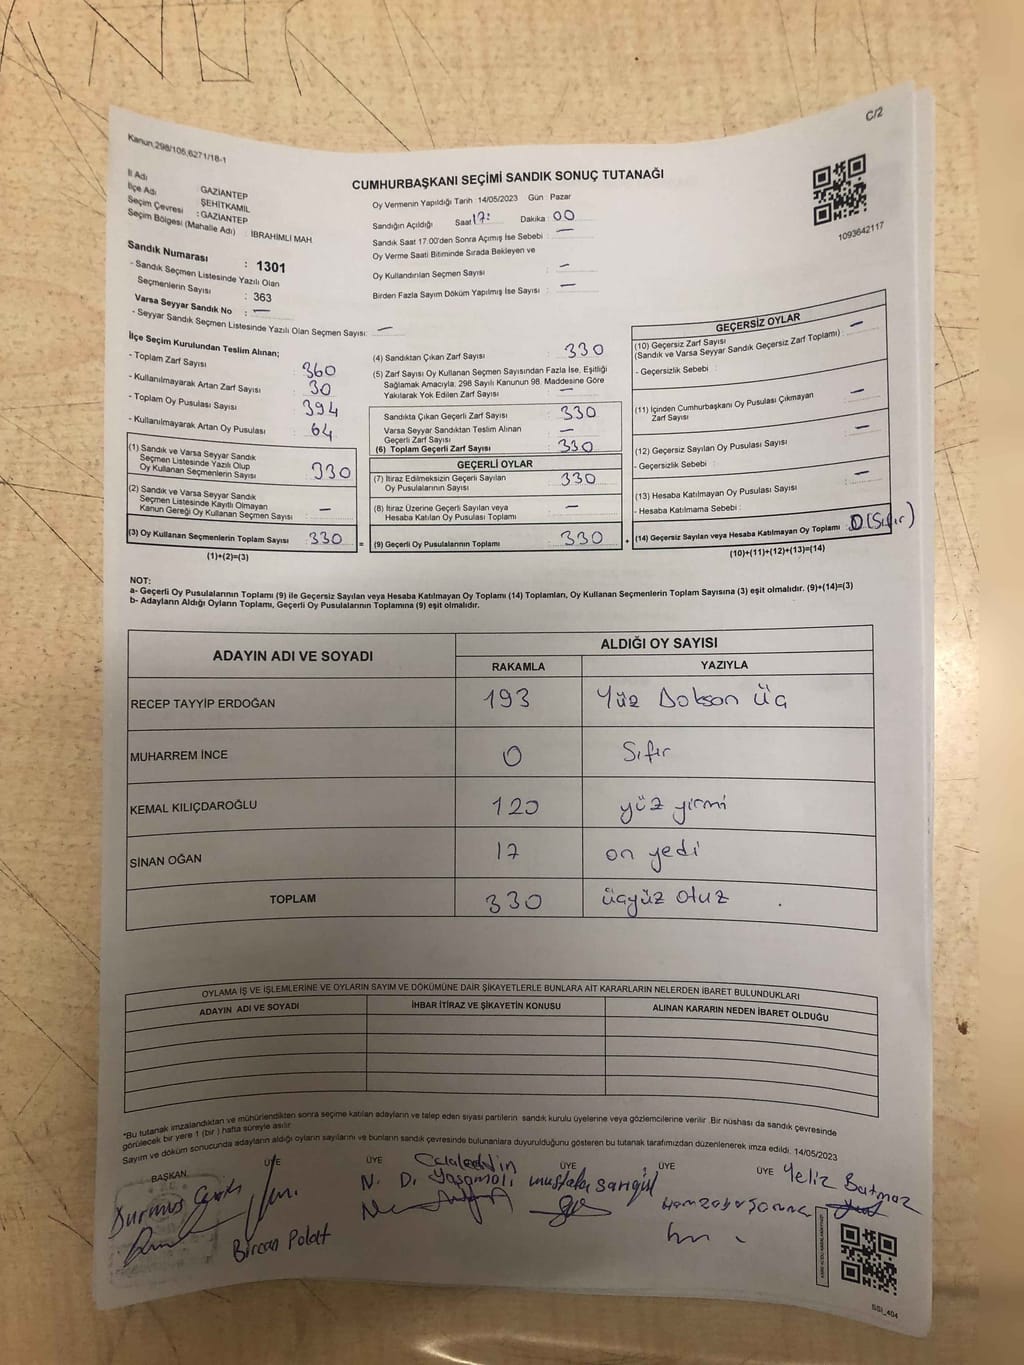 C/2
Kanun,298/105,6271/18-1
CUMHURBAŞKANI SEÇİMİ SANDIK SONUÇ TUTANAĞI
İl Adı GAZİANTEP
İlçe Adı ŞEHİTKAMİL
Seçim Çevresi : GAZİANTEP
Seçim Bölgesi (Mahalle Adı) : İBRAHİMLİ MAH
Oy Vermenin Yapıldığı Tarih 14/05/2023 Gün : Pazar
Sandığın Açıldığı Saat 17: Dakika : 00
Sandık Saat 17.00'den Sonra Açımış İse Sebebi : —
Oy Verme Saati Bitiminde Sırada Bekleyen ve
Oy Kullandırılan Seçmen Sayısı : —
Birden Fazla Sayım Döküm Yapılmış İse Sayısı : —
1093642117
Sandık Numarası : 1301
- Sandık Seçmen Listesinde Yazılı Olan
Seçmenlerin Sayısı : 363
Varsa Seyyar Sandık No : —
- Seyyar Sandık Seçmen Listesinde Yazılı Olan Seçmen Sayısı: —
İlçe Seçim Kurulundan Teslim Alınan;
- Toplam Zarf Sayısı : 360
- Kullanılmayarak Artan Zarf Sayısı : 30
- Toplam Oy Pusulası Sayısı : 394
- Kullanılmayarak Artan Oy Pusulası : 64
(1) Sandık ve Varsa Seyyar Sandık
Seçmen Listesinde Yazılı Olup
Oy Kullanan Seçmenlerin Sayısı : 330
(2) Sandık ve Varsa Seyyar Sandık
Seçmen Listesinde Kayıtlı Olmayan
Kanun Gereği Oy Kullanan Seçmen Sayısı : —
(3) Oy Kullanan Seçmenlerin Toplam Sayısı : 330
(1)+(2)=(3)
(4) Sandıktan Çıkan Zarf Sayısı : 330
(5) Zarf Sayısı Oy Kullanan Seçmen Sayısından Fazla İse, Eşitliği
Sağlamak Amacıyla, 298 Sayılı Kanunun 98. Maddesine Göre
Yakılarak Yok Edilen Zarf Sayısı : —
Sandıkta Çıkan Geçerli Zarf Sayısı : 330
Varsa Seyyar Sandıktan Teslim Alınan
Geçerli Zarf Sayısı : —
(6) Toplam Geçerli Zarf Sayısı : 330
GEÇERLİ OYLAR
(7) İtiraz Edilmeksizin Geçerli Sayılan
Oy Pusulalarının Sayısı : 330
(8) İtiraz Üzerine Geçerli Sayılan veya
Hesaba Katılan Oy Pusulası Toplamı : —
= (9) Geçerli Oy Pusulalarının Toplamı : 330 +
GEÇERSİZ OYLAR
(10) Geçersiz Zarf Sayısı
(Sandık ve Varsa Seyyar Sandık Geçersiz Zarf Toplamı) : —
- Geçersizlik Sebebi :
(11) İçinden Cumhurbaşkanı Oy Pusulası Çıkmayan
Zarf Sayısı : —
(12) Geçersiz Sayılan Oy Pusulası Sayısı : —
- Geçersizlik Sebebi :
(13) Hesaba Katılmayan Oy Pusulası Sayısı : —
- Hesaba Katılmama Sebebi :
(14) Geçersiz Sayılan veya Hesaba Katılmayan Oy Toplamı : 0 (Sıfır)
(10)+(11)+(12)+(13)=(14)
NOT:
a- Geçerli Oy Pusulalarının Toplamı (9) ile Geçersiz Sayılan veya Hesaba Katılmayan Oy Toplamı (14) Toplamları, Oy Kullanan Seçmenlerin Toplam Sayısına (3) eşit olmalıdır. (9)+(14)=(3)
b- Adayların Aldığı Oyların Toplamı, Geçerli Oy Pusulalarının Toplamına (9) eşit olmalıdır.
ADAYIN ADI VE SOYADI ALDIĞI OY SAYISI
RAKAMLA YAZIYLA
RECEP TAYYİP ERDOĞAN 193 Yüz Dokson üç
MUHARREM İNCE 0 Sıfır
KEMAL KILIÇDAROĞLU 120 yüz yirmi
SİNAN OĞAN 17 on yedi
TOPLAM 330 üçyüz otuz
OYLAMA İŞ VE İŞLEMLERİNE VE OYLARIN SAYIM VE DÖKÜMÜNE DAİR ŞİKAYETLERLE BUNLARA AİT KARARLARIN NELERDEN İBARET BULUNDUKLARI
ADAYIN ADI VE SOYADI İHBAR İTİRAZ VE ŞİKAYETİN KONUSU ALINAN KARARIN NEDEN İBARET OLDUĞU
*Bu tutanak imzalandıktan ve mühürlendikten sonra seçime katılan adayların ve talep eden siyasi partilerin sandık kurulu üyelerine veya gözlemcilerine verilir. Bir nüshası da sandık çevresinde
görülecek bir yere 1 (bir) hafta süreyle asılır.
Sayım ve döküm sonucunda adayların aldığı oyların sayılarını ve bunların sandık çevresinde bulunanlara duyurulduğunu gösteren bu tutanak tarafımızdan düzenlenerek imza edildi. 14/05/2023
BAŞKAN ÜYE ÜYE ÜYE ÜYE ÜYE
Celaleddin
N. D. Yaşamalı mustafa sarıgül Yeliz Batmaz
Durmuş
Bircan Polat
SSI_404